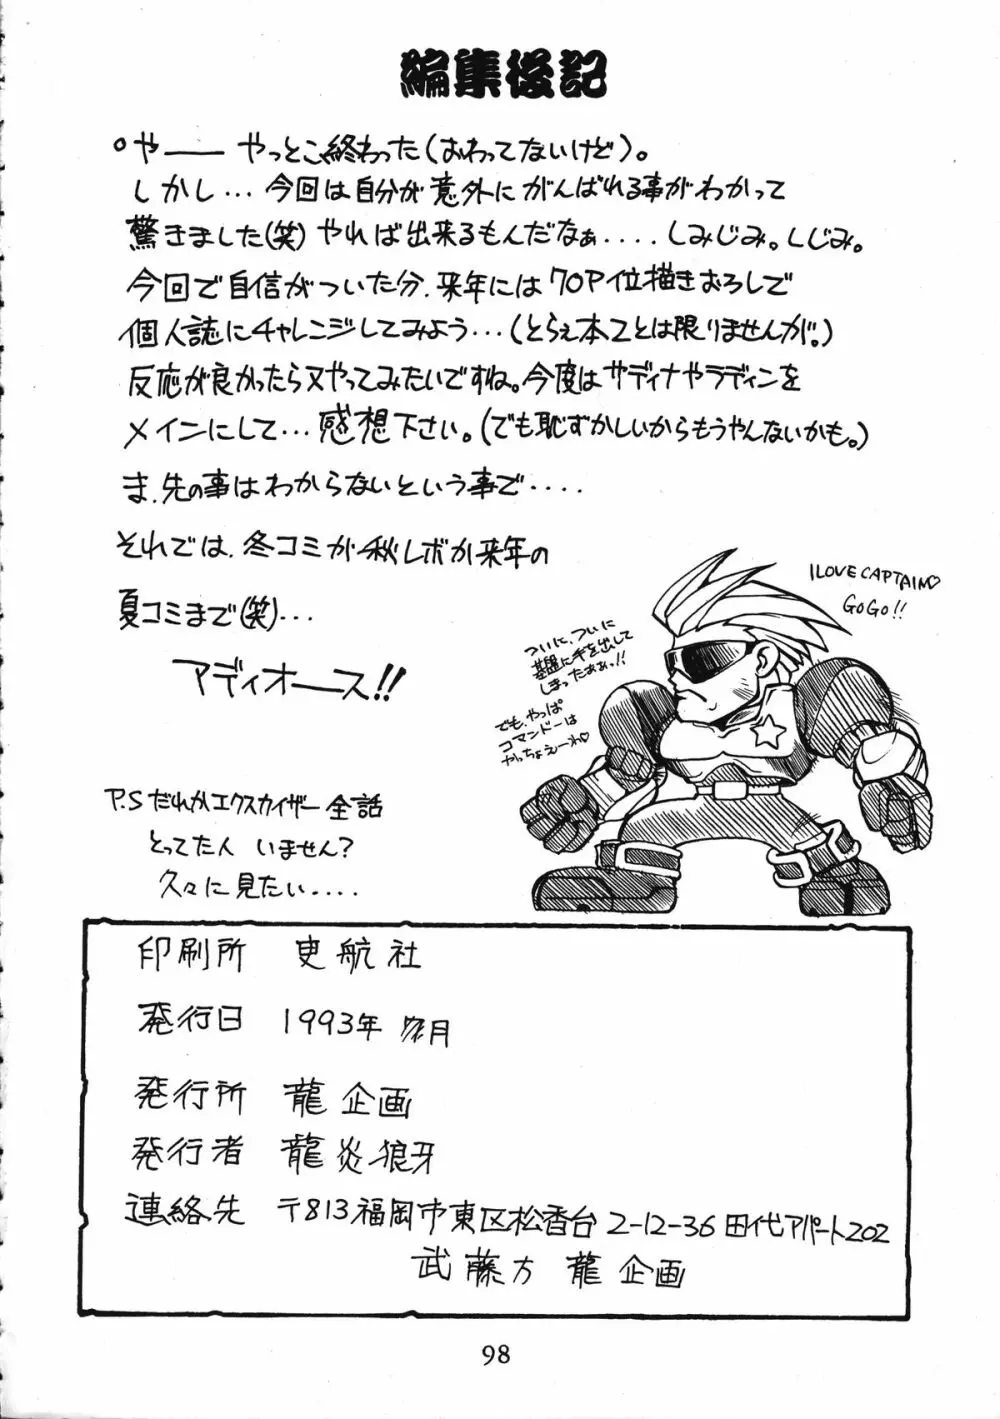 編集後記
○や―― やっとこ終わった(おわってないけど)。
しかし… 今回は自分が意外にがんばれる事がわかって
驚きました(笑) やれば出来るもんだなぁ.... しみじみ。しじみ。
今回で自信がついた分、来年には70P位描きおろしで
個人誌にチャレンジしてみよう…(とらぇ本とは限りませんが。)
反応が良かったら又やってみたいですね。今度はサディナやラディンを
メインにして… 感想下さい。(でも恥ずかしいからもうやんないかも。)
ま、先の事はわからないという事で....
それでは、冬コミか秋レボか来年の
夏コミまで(笑)…
アディオース!!
I LOVE CAPTAIN♡
GOGO!!
ついに、ついに
基盤に手を出して
しまったぁぁっ!!
でも、やっぱ
コマンドーは
かっちょえーわ♡
P.S だれかエクスカイザー全話
とってた人 いません?
久々に見たい....
印刷所 史航社
発行日 1993年 月
発行所 龍企画
発行者 龍炎狼牙
連絡先 〒813 福岡市東区松香台2-12-36 田代アパート202
武藤方 龍企画
98